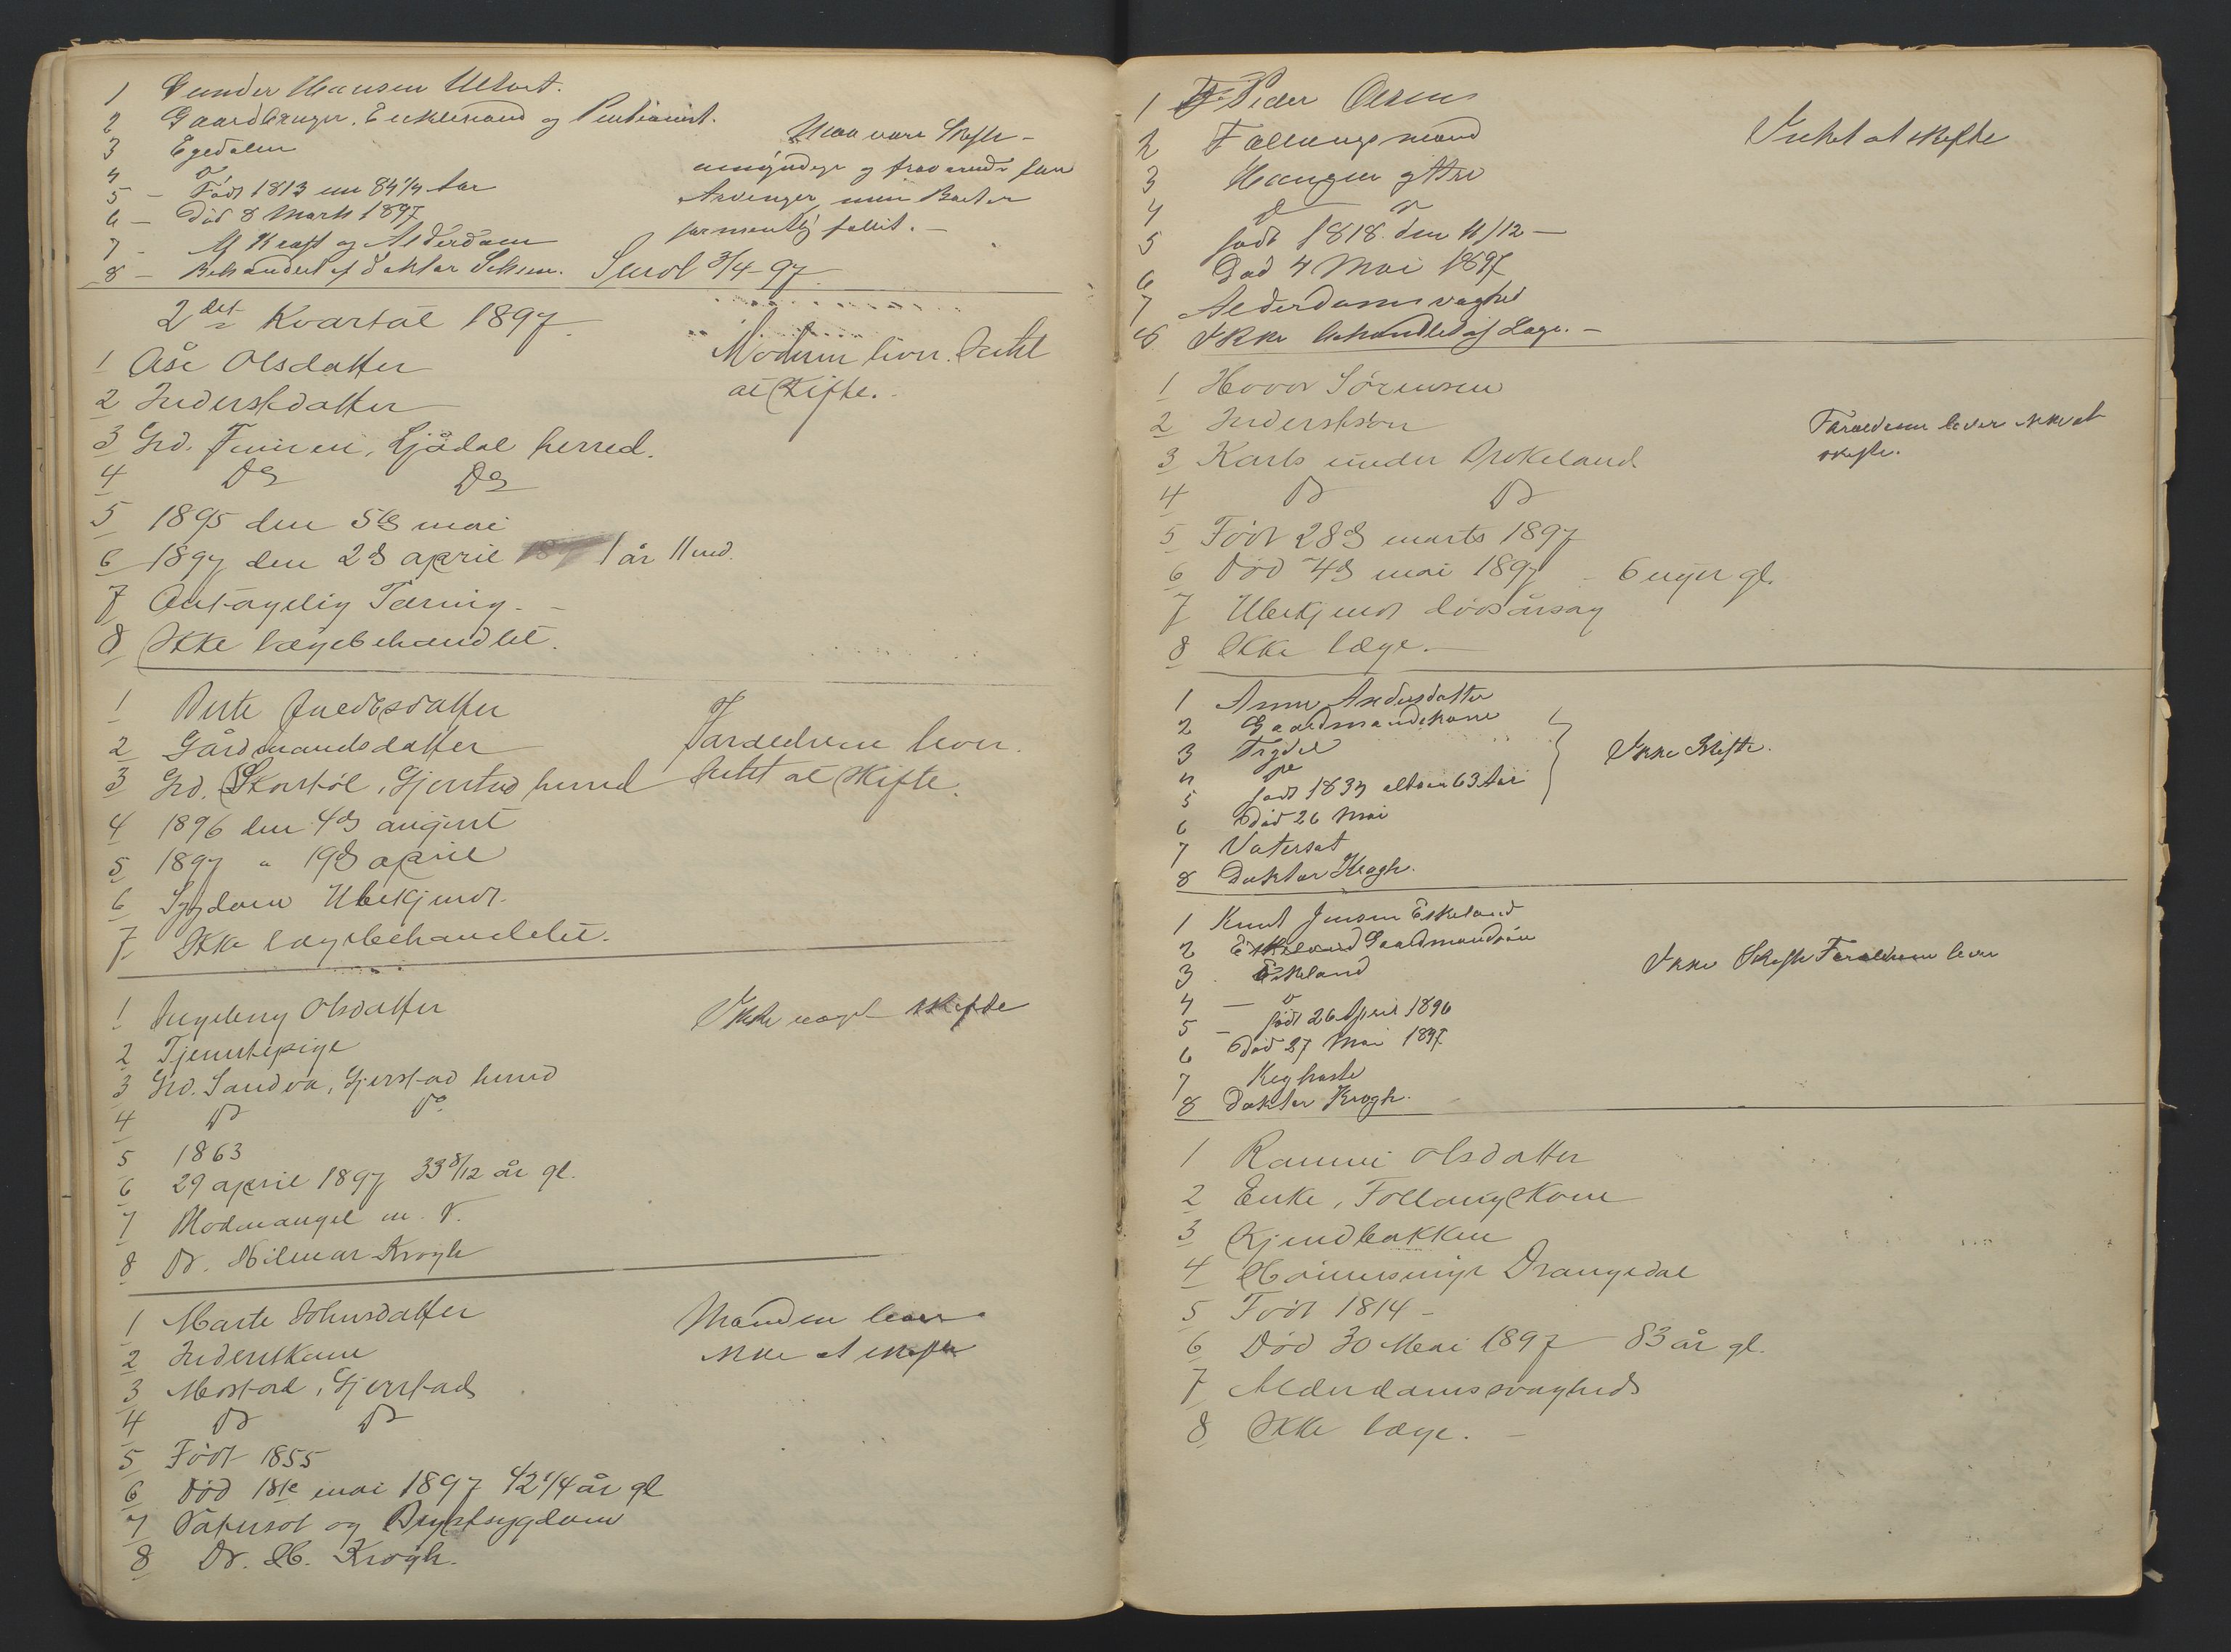 1 Gunder Hansen
2 Gaardbruger, Enkemand og Pensionist.
3 Egedalen
4 Do
5 - Født 1813 84 1/4 Aar
6 - Død 8 Marts 1897
7 - Af Kræft og Alderdom
8 - Behandlet af Doktor
Maa være Skifte
umyndige og fraværende
Arvinger, men Boet er
formentlig fallit. -
/4-97
2det Kvartal 1897
1 Åse Olsdatter
2 Inderstdatter
3 Grd. herred.
4 Do Do
5 1895 den 5te mai
6 1897 den 2d april 1 år 11 md.
7 Antagelig Tæring. -
8 Ikke lægebehandlet.
Moderen lever. Intet
at skifte.
1 Berte
2 Gårdmandsdatter
3 Grd. Skorstøl, Gjerstad herred
4 1896 den 4d august
5 1897 " 19d april
6 Sygdom Ubekjendt.
7 Ikke lægebehandelet.
Forældrene lever.
Intet at skifte.
1 Ingeborg Olsdatter
2 Tjenestepige
3 Grd. Sandva, Gjerstad herred
4 Do Do
5 1863
6 29 april 1897 33 8/12 år gl.
7 Blodmangel m. V.
8 Dr. Hilmar Krogh
Ikke noget skifte
1 Marte Johnsdatter
2 Inderstkone
3 Mostad, Gjerstad
4 Do Do
5 Født 1855
6 Død 18te mai 1897 42 1/4 år gl
7 Vatersot og Brystsygdom
8 Dr. H. Krogh.
Manden lever
ikke at skifte
1 Peder Olsen
2 Føllaugsmand
3 Haugen yttre
4 Do Do
5 født 1818 den 11/12 -
6 Død 4 Mai 1897
7 Alderdomsvaghed
8 Ikke behandlet af Læge. -
Intet at skifte
1 Hovor Sørensen
2 Inderstsøn
3 under Brokeland
4 Do Do
5 Født 28d marts 1897
6 Død 4d mai 1897 - 6 uger gl.
7 Ubekjendt dødsårsag
8 Ikke læge. -
Forældrene lever ikke at
skifte.
1 Anne Andersdatter
2 Gaardmandskone
3
4 Do
5 født 1833 altsaa 63 Aar
6 Død 26 Mai
7 Vatersot
8 Doktor Krogh.
Ikke Skifte.
1 Knut Jensen Eskeland
2 Gaardmandsøn
3 Eskeland
4 - Do
5 - født 26 April 1896
6 Død 27 Mai 1897
7 Kighoste
8 Doktor Krogh.
Ikke Skifte Forældrene lever
1 Rannei Olsdatter
2 Enke, Føllaugskone
3 Kjendbakken
4 Drangedal
5 Født 1814 -
6 Død 30 Mai 1897 - 83 år gl.
7 Alderdomssvaghed
8 Ikke læge. -